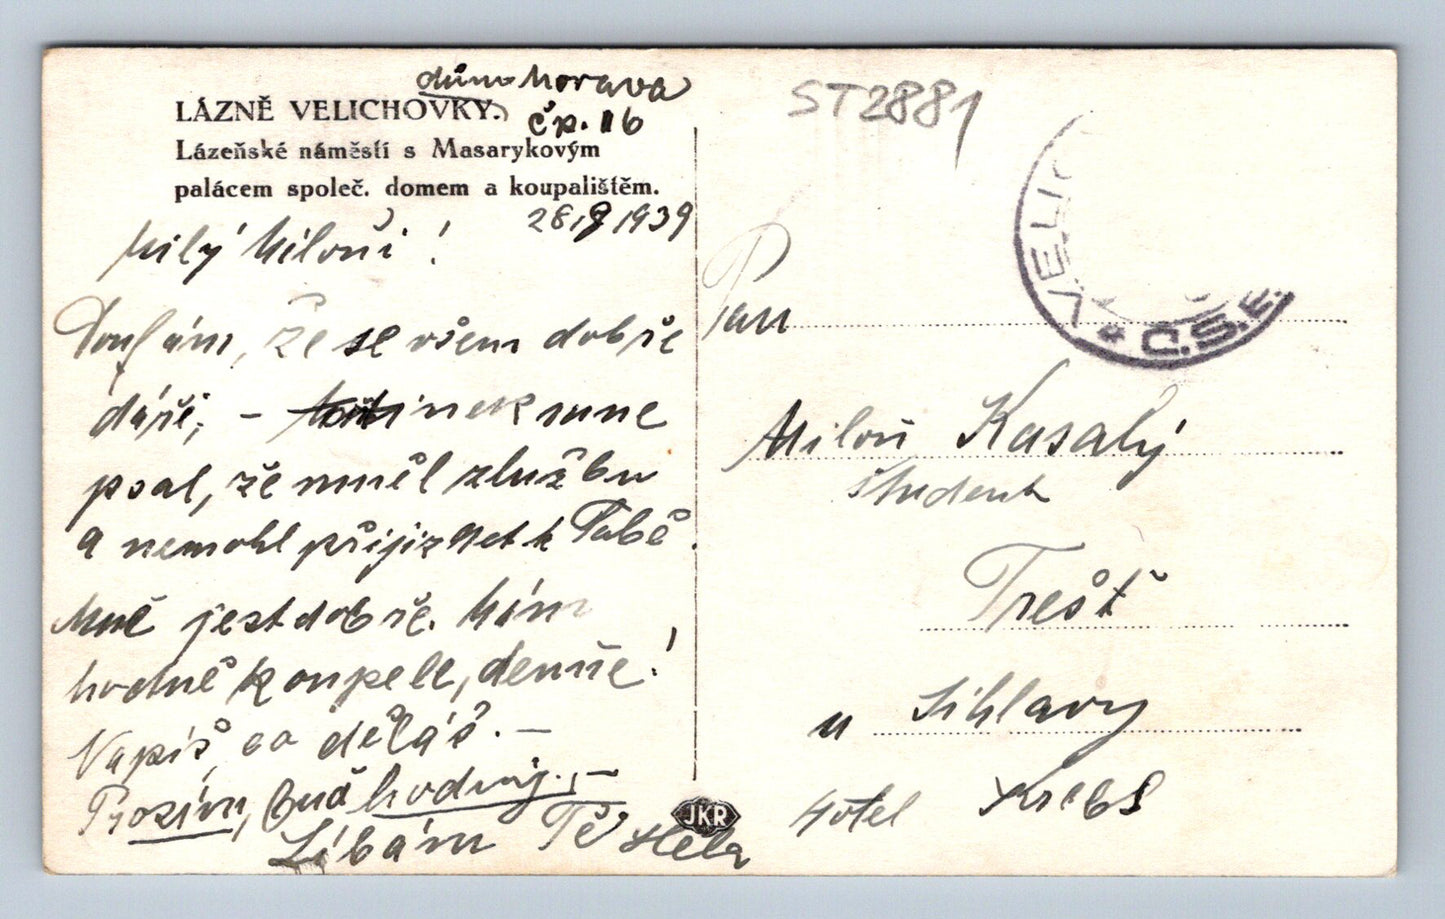 dům Morava
LÁZNĚ VELICHOVKY.
čp. 116
Lázeňské náměstí s Masarykovým
palácem společ. domem a koupalištěm.
28/8 1939
Milý Miloši!
Doufám, že se všem dobře
daří, – inek mne
psal, že měl službu
a nemohl přijizdet k Tobě.
Mně jest dobře. Mám
hodně koupele, denně!
Napiš, co děláš. –
Prosím, buď hodnej. –
Líbám Tě
ST2881
VELI
* Č.S.R.
Pan
Miloš Kasalý
študent
Třešť
u Jihlavy
Hotel Krebs
JKR